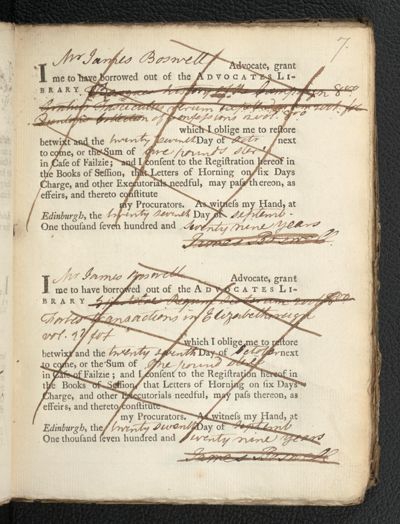 7.
I Mr James Boswell Advocate, grant
me to have borrowed out of the ADVOCATES LI-
BRARY
which I oblige me to restore
betwixt and the twenty seventh Day of next
to come, or the Sum of one pound
in Case of Failzie; and I consent to the Registration hereof in
the Books of Session, that Letters of Horning on six Days
Charge, and other Executorials needful, may pass thereon, as
effeirs, and thereto constitute
my Procurators. As witness my Hand, at
Edinburgh, the twenty seventh Day of septemb.
One thousand seven hundred and seventy nine years
James Boswell
I Mr James Boswell Advocate, grant
me to have borrowed out of the ADVOCATES LI-
BRARY
Forbes transactions in Elizabeths reign
vol. fol which I oblige me to restore
betwixt and the twenty seventh Day of October next
to come, or the Sum of one pound
in Case of Failzie; and I consent to the Registration hereof in
the Books of Session, that Letters of Horning on six Days
Charge, and other Executorials needful, may pass thereon, as
effeirs, and thereto constitute
my Procurators. As witness my Hand, at
Edinburgh, the twenty seventh Day of septemb
One thousand seven hundred and seventy nine years
James Boswell